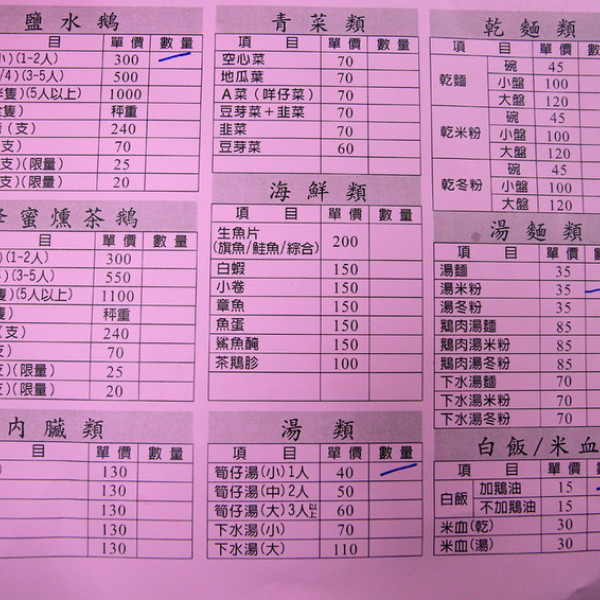 鹽水鵝
目 單價 數量
小)(1-2人) 300
/4)(3-5人) 500
隻)(5人以上) 1000
隻) 秤重
(支) 240
支) 70
支)(限量) 25
支)(限量) 20
蜂蜜燻茶鵝
目 單價 數量
)(1-2人) 300
)(3-5人) 550
隻)(5人以上) 1100
隻) 秤重
(支) 240
支) 70
支)(限量) 25
支)(限量) 20
內臟類
目 單價 數量
130
130
130
130
130
青菜類
項目 單價 數量
空心菜 70
地瓜葉 70
A菜(咩仔菜) 70
豆芽菜+韭菜 70
韭菜 70
豆芽菜 60
海鮮類
項目 單價 數量
生魚片
(旗魚/鮭魚/綜合) 200
白蝦 150
小卷 150
章魚 150
魚蛋 150
鯊魚醃 150
茶鵝胗 100
湯類
項目 單價 數量
筍仔湯(小)1人 40
筍仔湯(中)2人 50
筍仔湯(大)3人以上 60
下水湯(小) 70
下水湯(大) 110
乾麵類
項目 單價 數
乾麵 碗 45
小盤 100
大盤 120
乾米粉 碗 45
小盤 100
大盤 120
乾冬粉 碗 45
小盤 100
大盤 120
湯麵類
項目 單價
湯麵 35
湯米粉 35
湯冬粉 35
鵝肉湯麵 85
鵝肉湯米粉 85
鵝肉湯冬粉 85
下水湯麵 70
下水湯米粉 70
下水湯冬粉 70
白飯/米血
項目 單價
白飯 加鵝油 15
不加鵝油 15
米血(乾) 30
米血(湯) 30